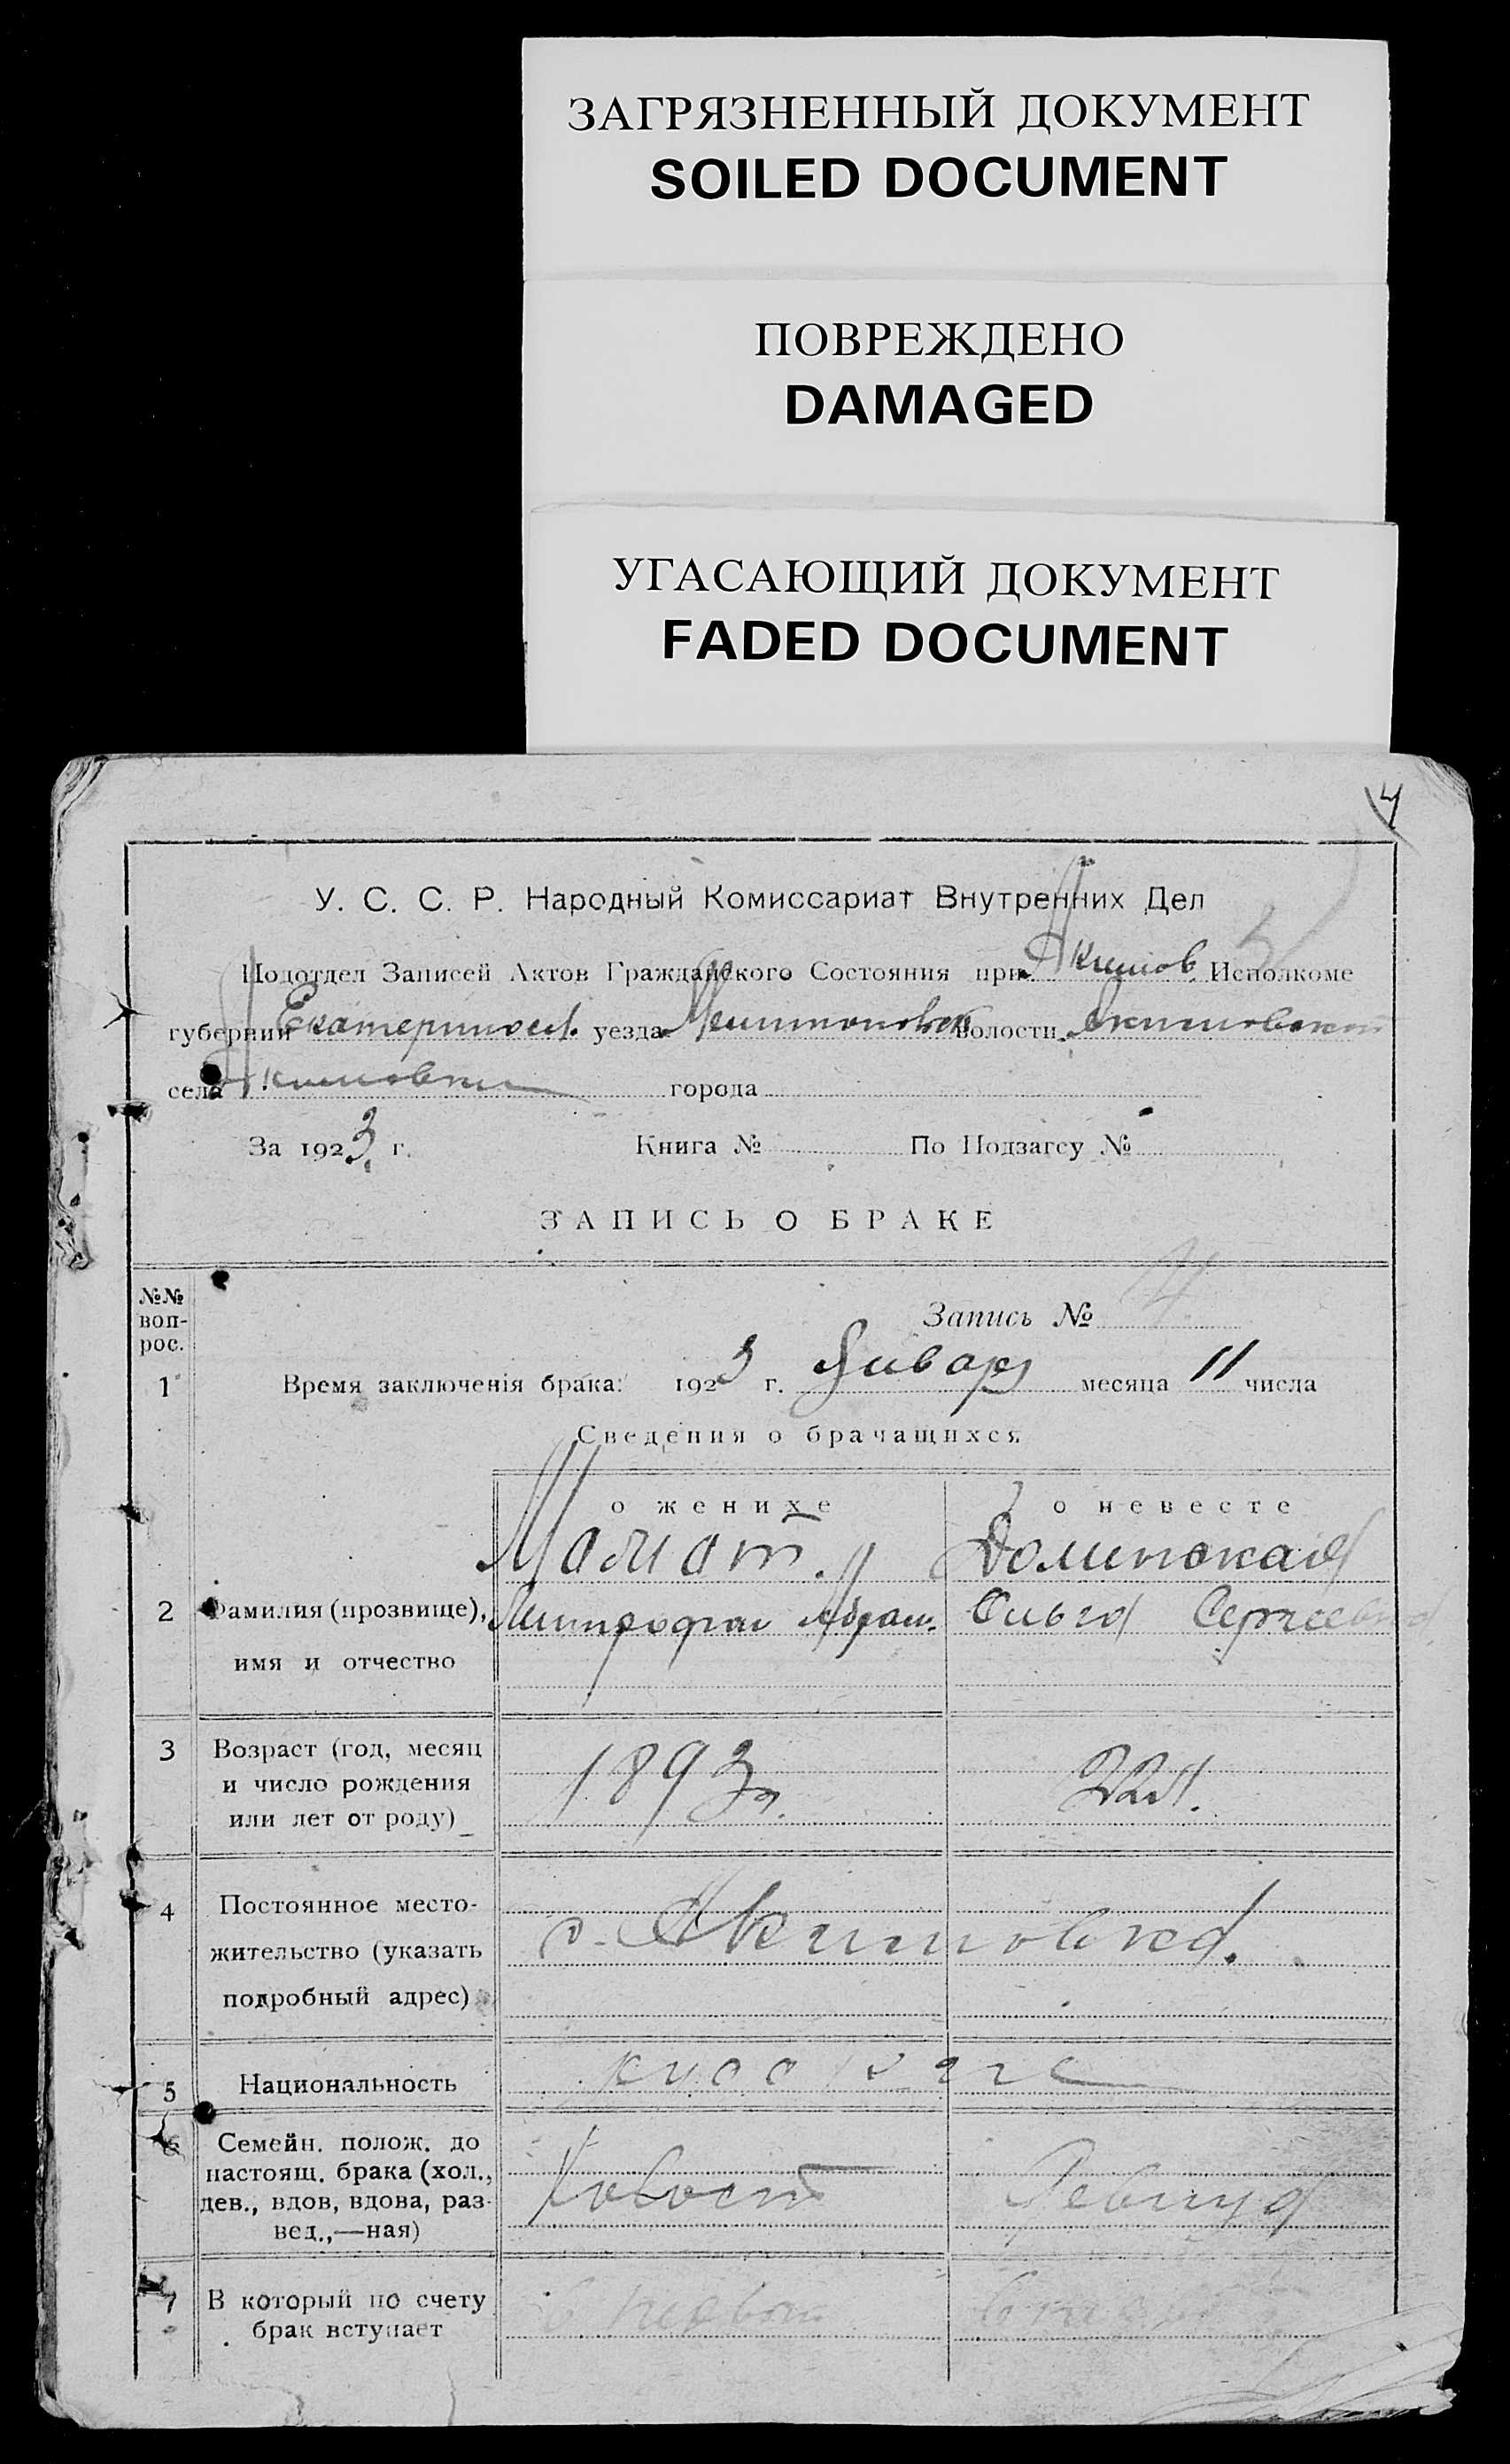 ЗАГРЯЗНЕННЫЙ ДОКУМЕНТ
SOILED DOCUMENT
ПОВРЕЖДЕНО
DAMAGED
УГАСАЮЩИЙ ДОКУМЕНТ
FADED DOCUMENT
4
У. С. С. Р. Народный Комиссариат Внутренних Дел
Подотдел Записей Актов Гражданского Состояния при Акимов. Исполкоме
губернии Екатериносл. уезда Мелитопольск волости Акимовской
села Акимовки города
За 1923 г. Книга № По Подзагсу №
ЗАПИСЬ О БРАКЕ
№№ воп-рос.
Запись № 4
1 Время заключенія брака: 1923 г. Январ месяца 11 числа
Сведения о брачащихся
о женихе о невесте
Долинская
2 Фамилия (прозвище), Митрофан Абрам. Ольга Сергеевна
имя и отчество
3 Возраст (год, месяц
и число рождения 1893 г. 22 л.
или лет от роду)
4 Постоянное место-
жительство (указать с. Акимовка.
подробный адрес)
5 Национальность русские
6 Семейн. полож. до
настоящ. брака (хол.,
дев., вдов, вдова, раз- Холост Девица
вед.,—ная)
7 В который по счету в первый
брак вступает